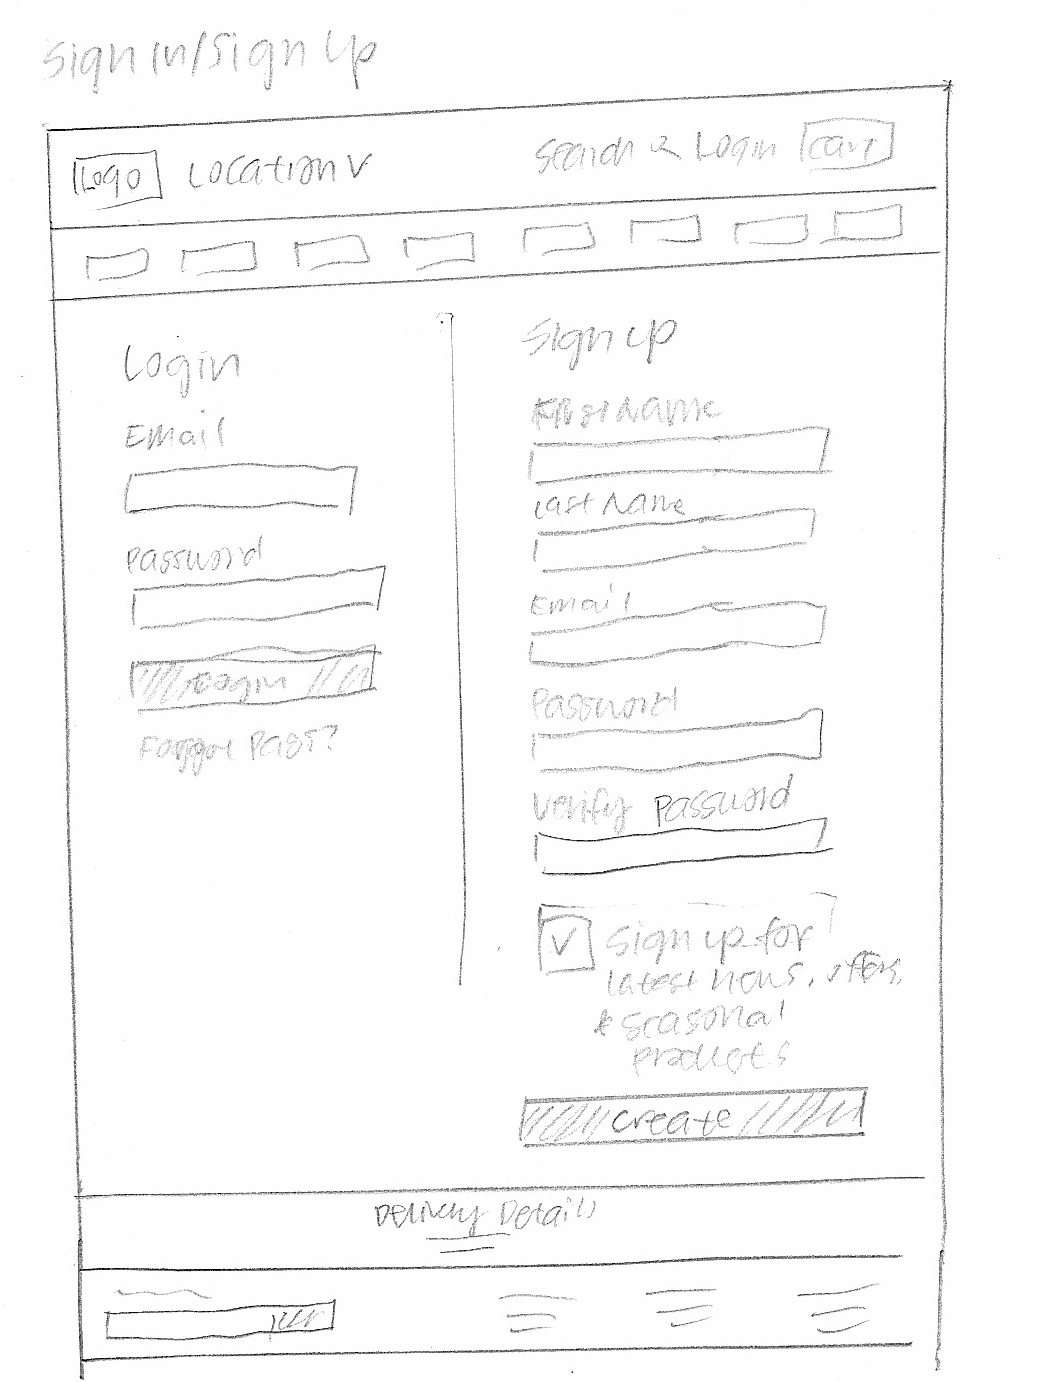 Sign In/Sign Up
Logo Location v Search Login Cart
Login
Email
Password
Login
Forgot Pass?
Sign up
First Name
Last Name
Email
Password
Verify Password
Sign up for
latest news, offers,
& seasonal
products
create
Delivery Details